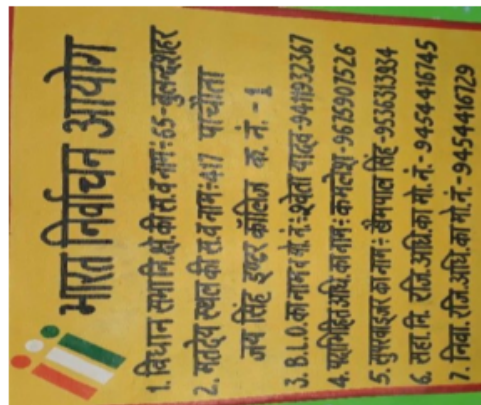 भारत निर्वाचन आयोग
1. विधान सभा नि.क्षे.की सं.व नामः 65-बुलन्दशहर
2. मतदेय स्थल की सं.व नामः 417 पाचौता
जय सिंह इण्टर कॉलिज क. नं. - 1
3. B.L.O. का नाम व मो. नं.: श्वेता यादव -9411932367
4. पदाभिहित अधि. का नामः कमलेश - 9675907526
5. सुपरवाइजर का नामः खेमपाल सिंह - 9536313934
6. सहा. नि. रजि. अधि. का मो. नं. - 9454416745
7. निर्वा. रजि. अधि. का मो. नं. - 9454416729